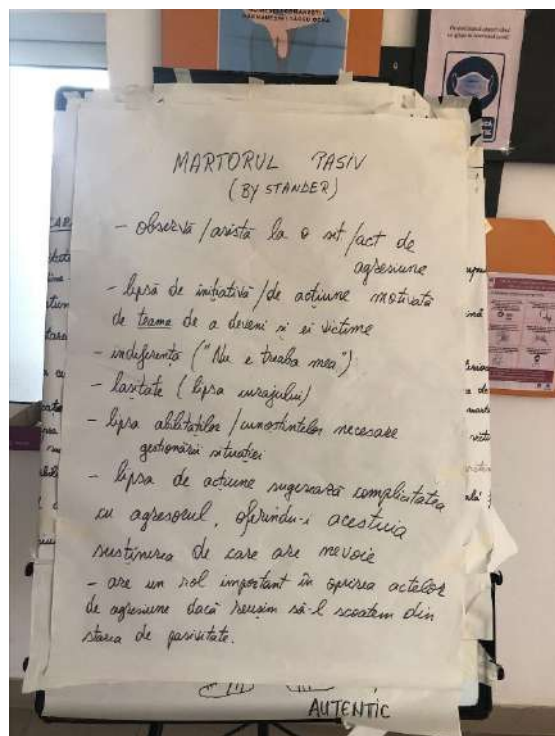 MARTORUL PASIV
(BY STANDER)
- observă / asistă la o sit / act de
agresiune
- lipsă de inițiativă / de acțiune motivată
de teame de a deveni și ei victime
- indiferența ("Nu e treaba mea")
- lașitate (lipsa curajului)
- lipsa abilităților / cunoștințelor necesare
gestionării situației
- lipsa de acțiune sugerează complicitatea
cu agresorul, oferindu-i acestuia
susținerea de care are nevoie
- are un rol important în oprirea actelor
de agresiune dacă reușim să-l scoatem din
starea de pasivitate.
AUTENTIC